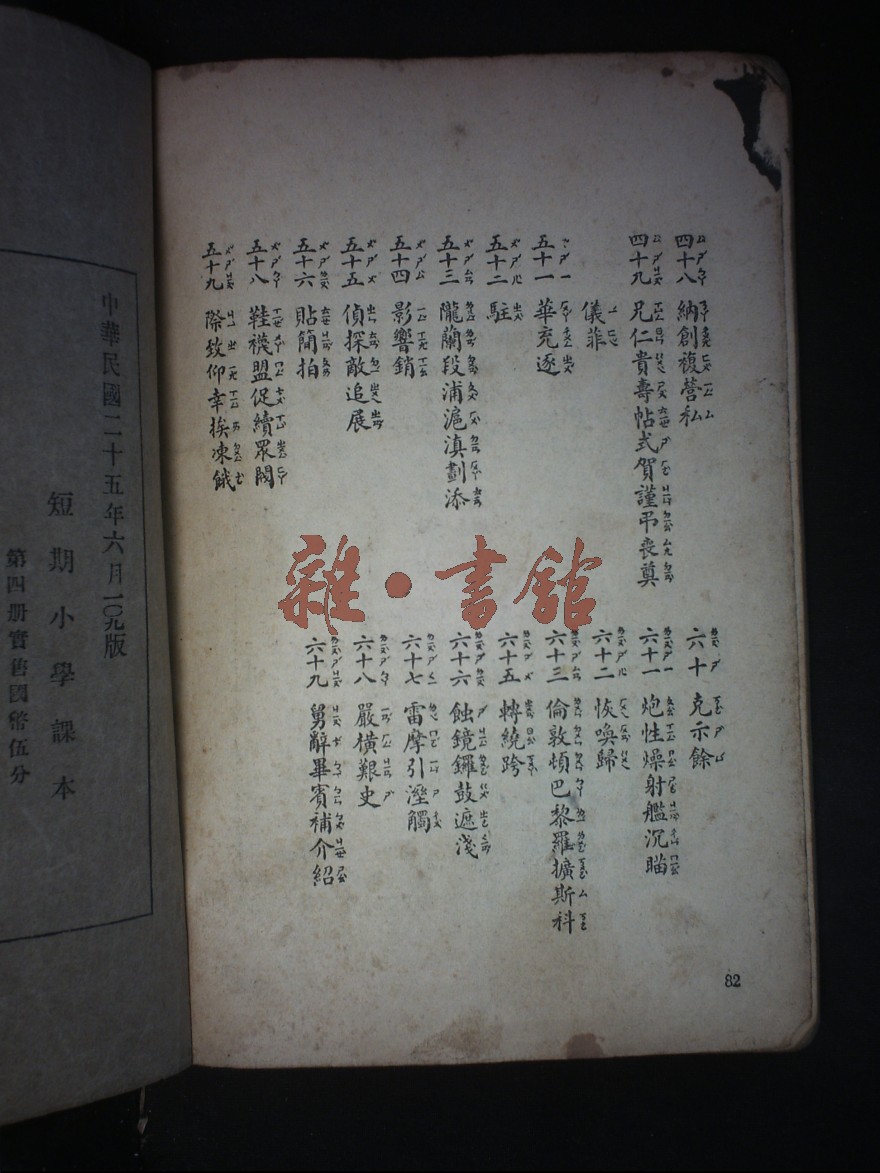 四十八 納創複營私
四十九 兄仁貴壽帖式賀謹弔喪奠
儀菲
五十一 華充逐
五十二 駐
五十三 隴蘭段浦滬滇劃添
五十四 影響銷
五十五 偵探敵追展
五十六 貼簡拍
五十八 鞋襪盟促續眾閥
五十九 際致仰幸挨凍餓
六十 克示餘
六十一 炮性燥射艦沉瞄
六十二 恢喚歸
六十三 倫敦頓巴黎羅擴斯科
六十五 轉繞跨
六十六 蝕鏡鑼鼓遮淺
六十七 雷摩引溼觸
六十八 嚴橫艱史
六十九 舅辭畢賓補介紹
82
雜·書館
中華民國二十五年六月一〇九版
短期小學課本
第四册實售國幣伍分